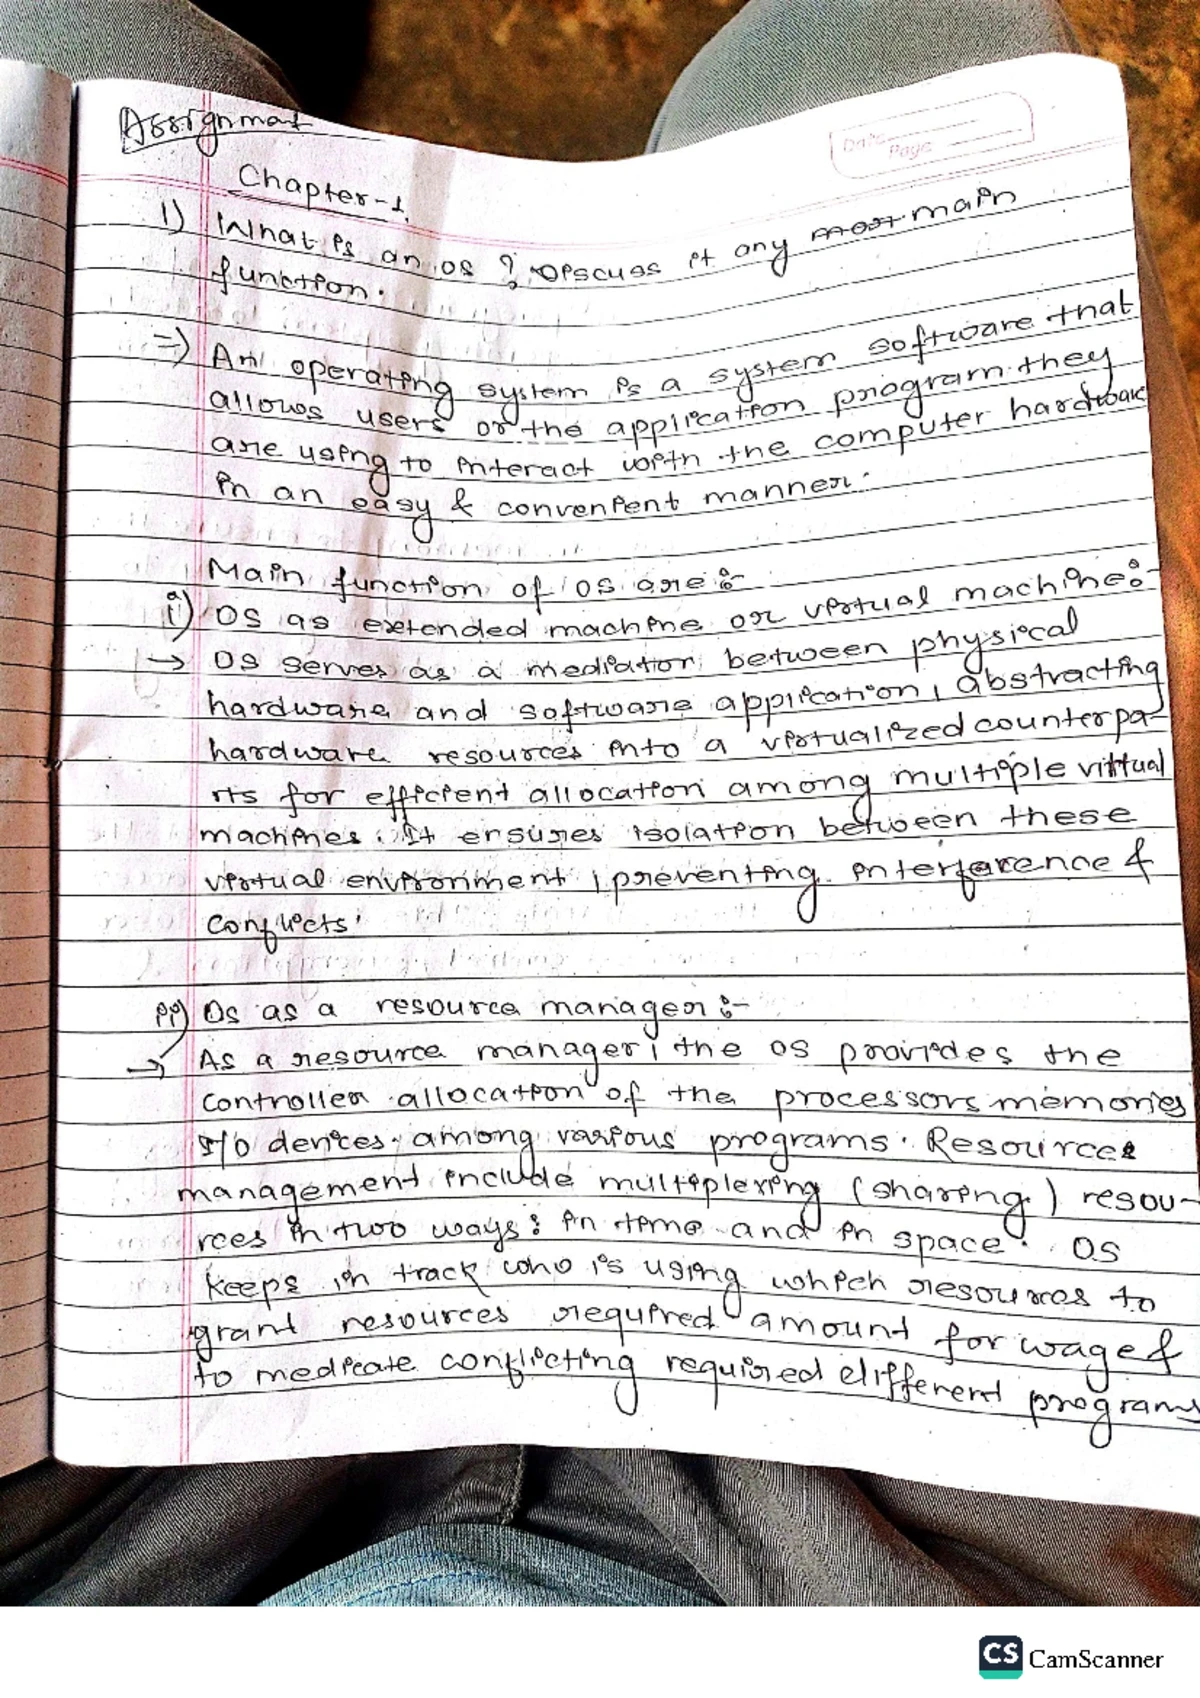 Assignmat
Date
Page
Chapter-1.
1) What is an os ? Discuss it any most main
function.
=) An operating system is a system software that
allows users or the application program they
are using to interact with the computer hardware
in an easy & convenient manner.
Main function of OS are:-
i) OS as extended machine or virtual machine:-
→ OS serves as a mediator between physical
hardware and software application, abstracting
hardware resources into a virtualized counterpa-
rts for efficient allocation among multiple virtual
machines. It ensures isolation between these
virtual environment, preventing interference &
conflicts.
ii) Os as a resource manager:-
→ As a resource manager, the OS provides the
controller allocation of the processors memories
I/O devices, among various programs. Resources
management include multiplexing (sharing) resou-
rces in two ways: in time and in space. OS
keeps in track who is using which resources to
grant resources required amount for wage &
to medicate conflicting required different programs
CS CamScanner